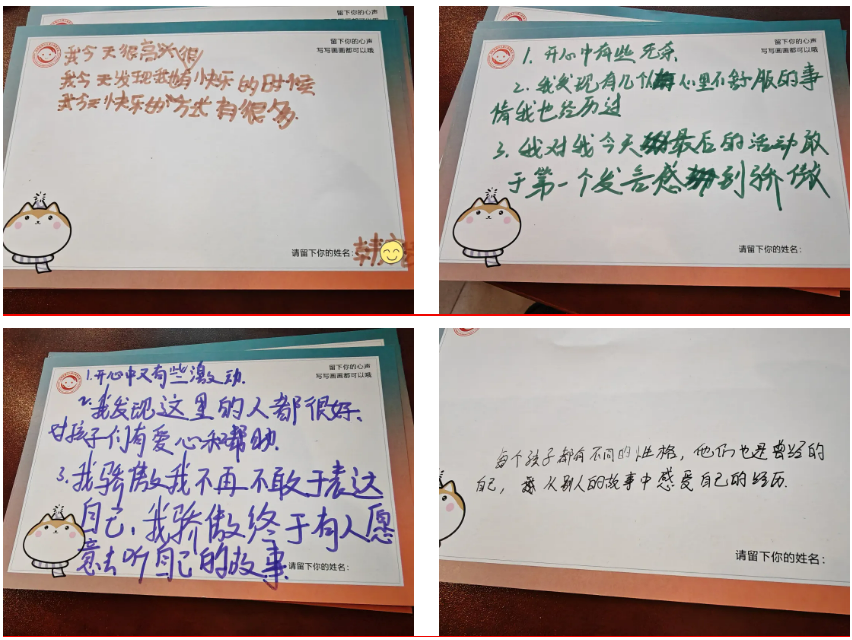 留下你的心声
写写画画都可以哦
我今天很高兴很
我今天发现我有快乐的时候
我今天快乐的方式有很多
请留下你的姓名:
韩
留下你的心声
写写画画都可以哦
1. 开心中有些无奈.
2. 我发现有几个心里不舒服的事
情我也经历过
3. 我对我今天最后的活动敢
于第一个发言感到骄傲
请留下你的姓名:
留下你的心声
写写画画都可以哦
1.开心中又有些激动.
2.我发现这里的人都很好、
对孩子们有爱心和帮助.
3.我骄傲我不再不敢于表达
自己,我骄傲终于有人愿
意去听自己的故事.
请留下你的姓名:
每个孩子都有不同的性格,他们也是曾经的
自己,从别人的故事中感受自己的经历.
请留下你的姓名: